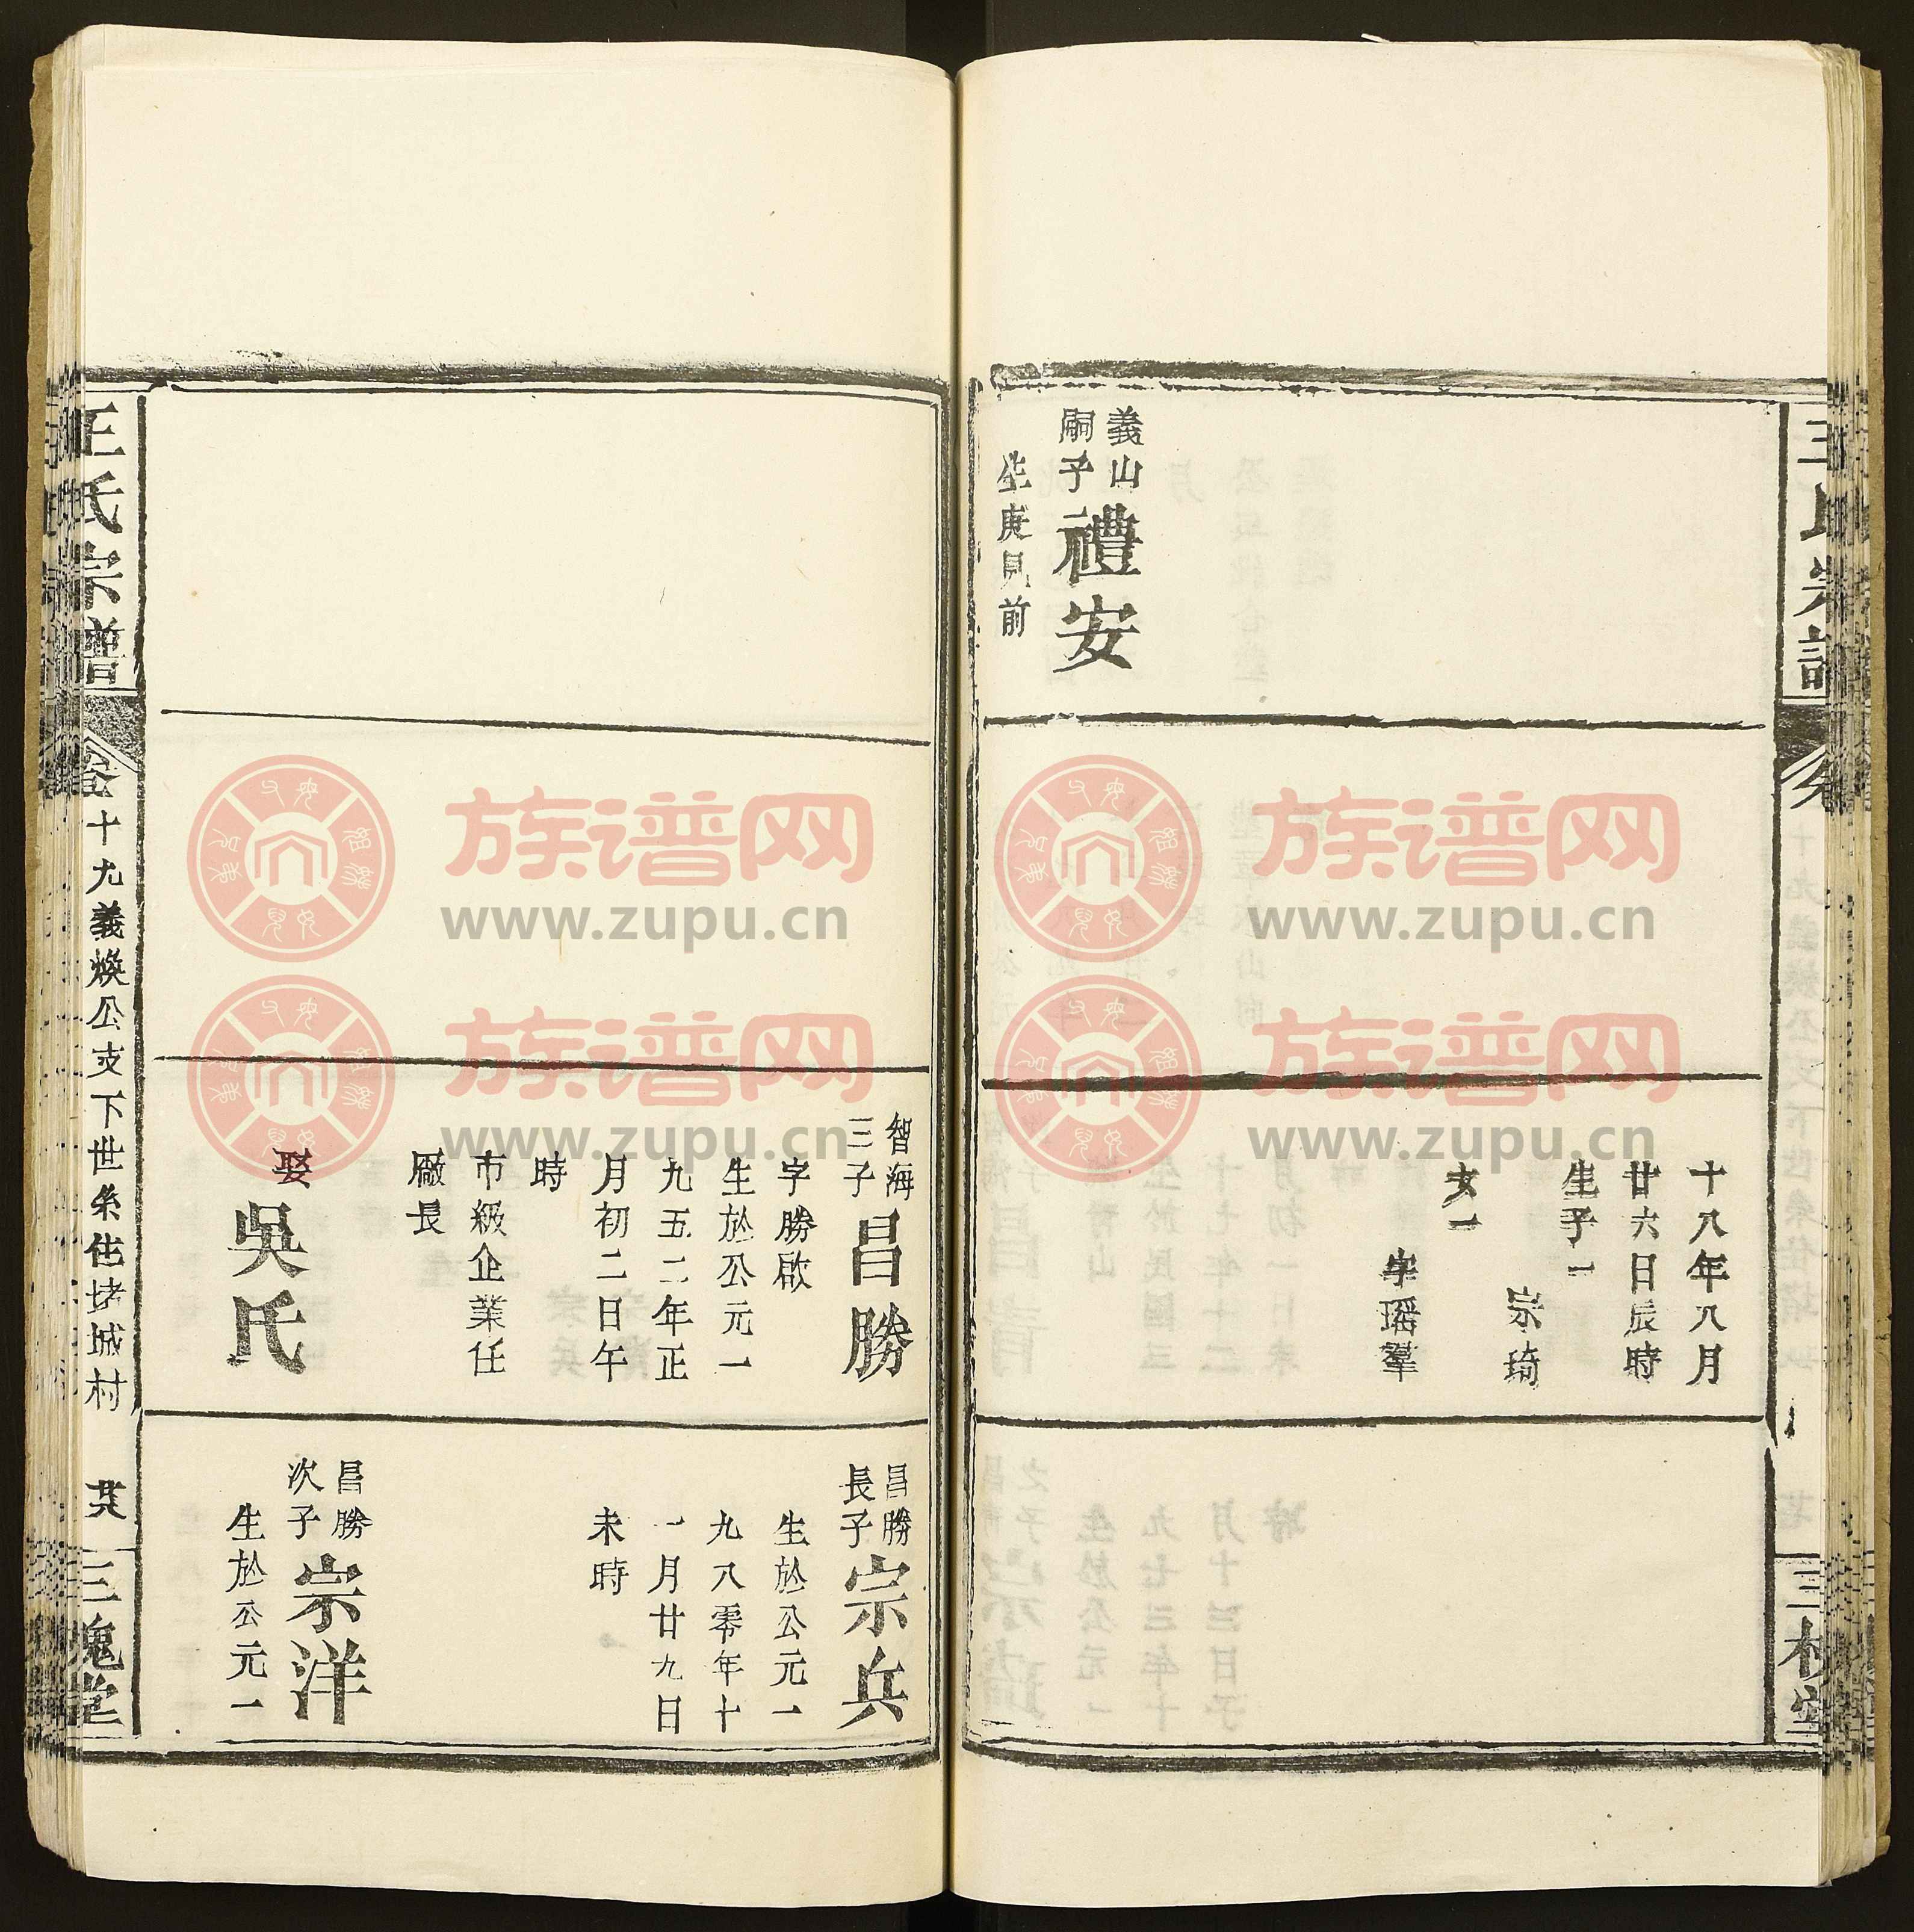 王氏宗譜
義山
嗣子
禮安
生庚見前
十八年八月
廿六日辰時
生子一
宗琦
女一
字瑶羣
三槐堂
智海
三子
昌勝
字勝啟
生於公元一
九五二年正
月初二日午
時
市級企業任
廠長
娶
吳氏
昌勝
長子
宗兵
生於公元一
九八零年十
一月廿九日
未時
昌勝
次子
宗洋
生於公元一
王氏宗譜
卷十九義煥公支下世系住堵城村
三槐堂
族谱网
www.zupu.cn
族谱网
www.zupu.cn
族谱网
www.zupu.cn
族谱网
www.zupu.cn